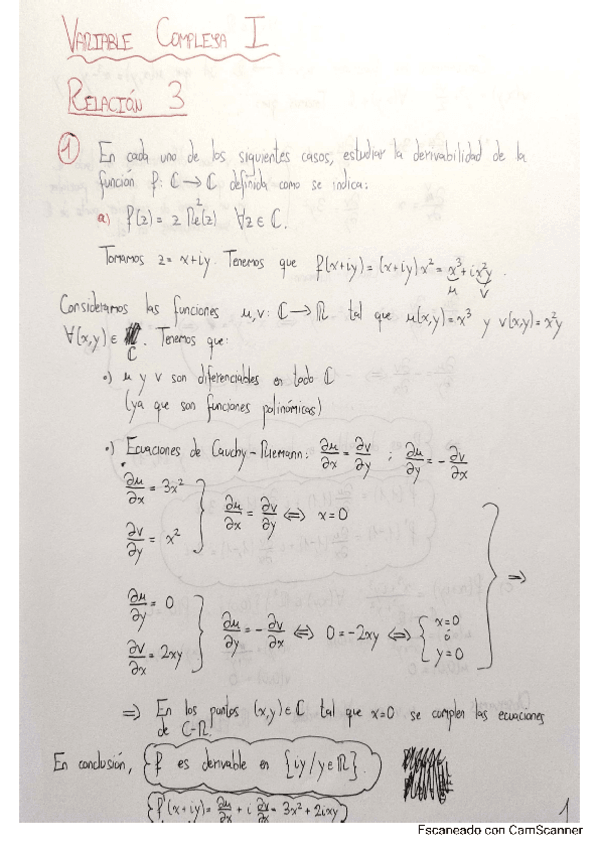 VARIABLE COMPLEJA I
RELACIÓN 3
① En cada uno de los siguientes casos, estudiar la derivabilidad de la
función f: ℂ → ℂ definida como se indica:
a) f(z) = z Re²(z) ∀z ∈ ℂ.
Tomamos z = x+iy. Tenemos que f(x+iy) = (x+iy) x² = x³ + i x²y .
u v
Consideramos las funciones u, v: ℂ → ℝ tal que u(x,y) = x³ y v(x,y) = x²y
∀(x,y) ∈ ℂ. Tenemos que:
•) u y v son diferenciables en todo ℂ
(ya que son funciones polinómicas)
•) Ecuaciones de Cauchy-Riemann: ∂u/∂x = ∂v/∂y ; ∂u/∂y = - ∂v/∂x
∂u/∂x = 3x²
∂v/∂y = x²
∂u/∂x = ∂v/∂y ⟺ x=0
∂u/∂y = 0
∂v/∂x = 2xy
∂u/∂y = - ∂v/∂x ⟺ 0 = -2xy ⟺ { x=0 ó y=0 } ⟹
⟹ En los puntos (x,y) ∈ ℂ tal que x=0 se cumplen las ecuaciones
de C-R.
En conclusión, f es derivable en {iy / y ∈ ℝ}.
f'(x+iy) = ∂u/∂x + i ∂v/∂x = 3x² + 2ixy
1
Escaneado con CamScanner